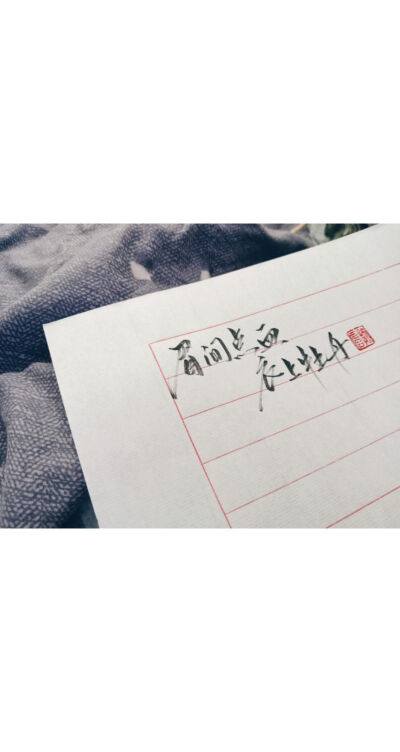 眉间点
衣上牡丹